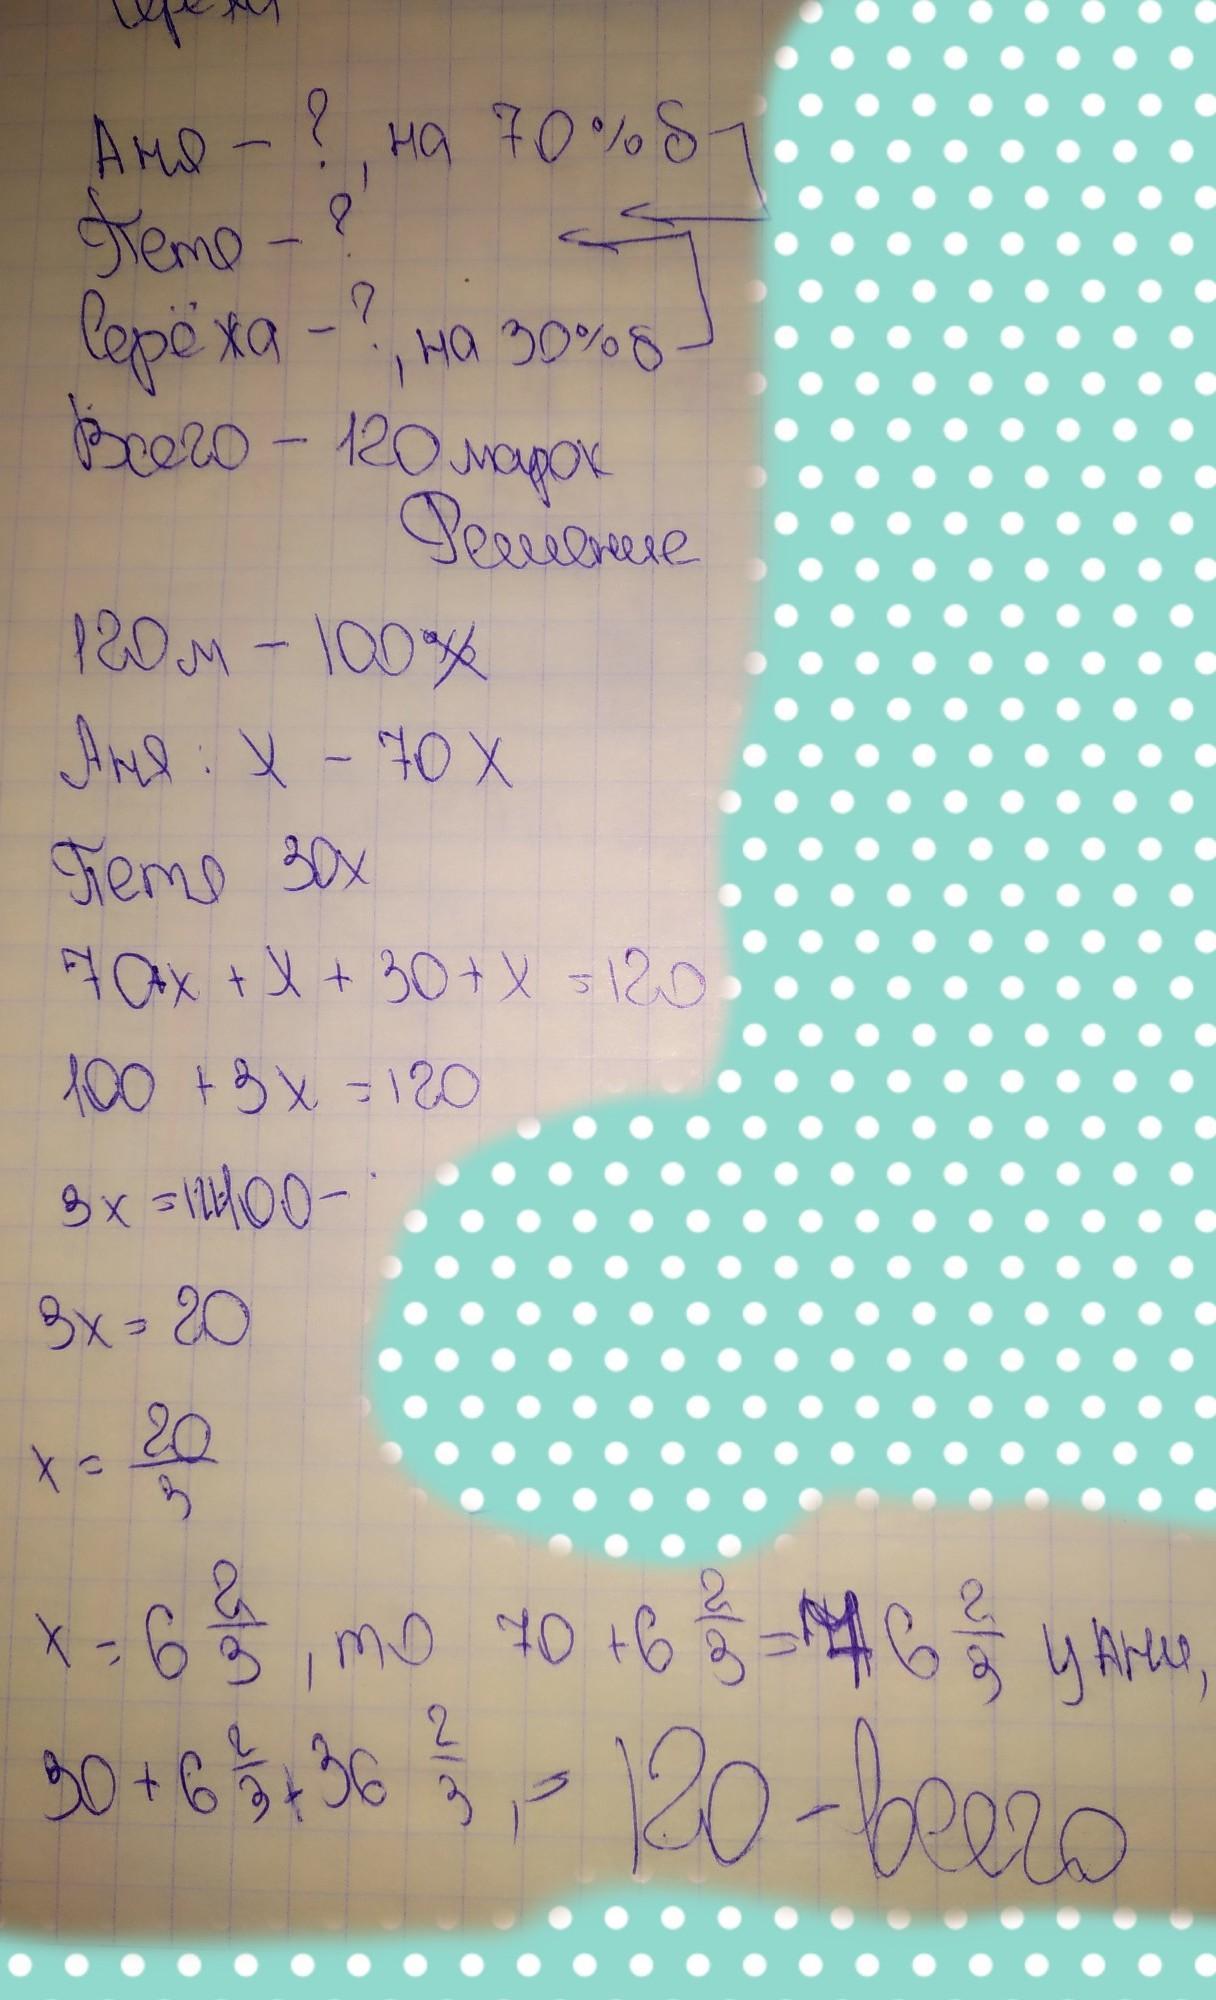 Серёжа
Аня - ?, на 70% б
Петя - ?
Серёжа - ?, на 30% б
Всего - 120 марок
Решение
120м - 100%
Аня: x - 70x
Петя 30x
70+x + x + 30 + x = 120
100 + 3x = 120
3x = 100 -
3x = 20
x = 20/3
x = 6 2/3, то 70 + 6 2/3 = 76 2/3 у Ани,
30 + 6 2/3 + 36 2/3, = 120 - всего